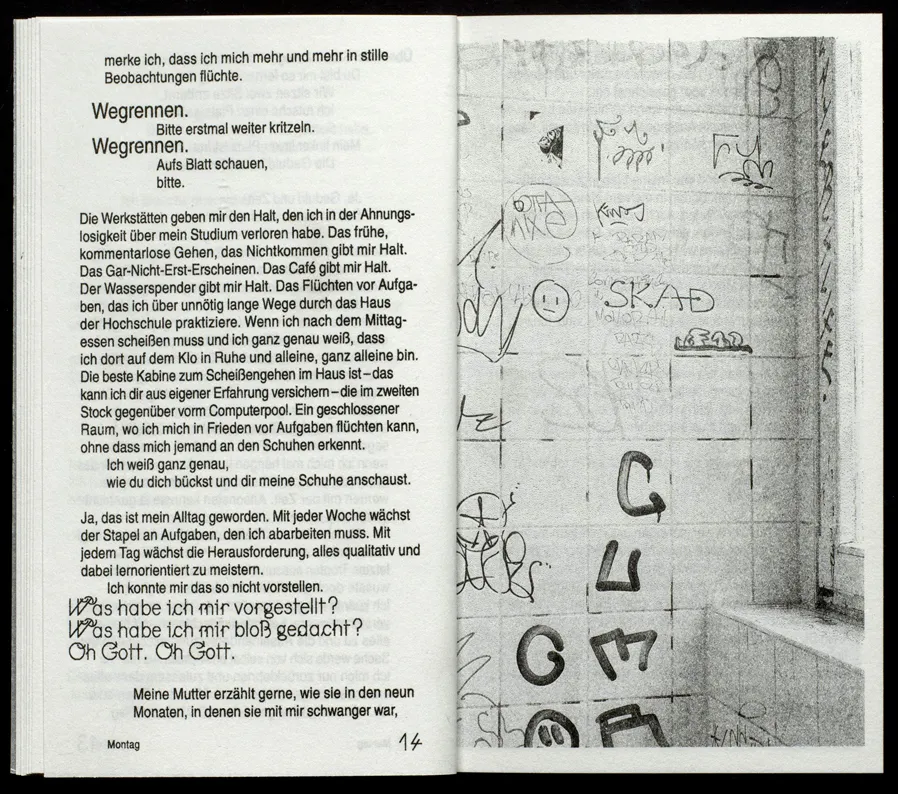 merke ich, dass ich mich mehr und mehr in stille
Beobachtungen flüchte.
Wegrennen.
Bitte erstmal weiter kritzeln.
Wegrennen.
Aufs Blatt schauen,
bitte.
Die Werkstätten geben mir den Halt, den ich in der Ahnungs-
losigkeit über mein Studium verloren habe. Das frühe,
kommentarlose Gehen, das Nichtkommen gibt mir Halt.
Das Gar-Nicht-Erst-Erscheinen. Das Café gibt mir Halt.
Der Wasserspender gibt mir Halt. Das Flüchten vor Aufga-
ben, das ich über unnötig lange Wege durch das Haus
der Hochschule praktiziere. Wenn ich nach dem Mittag-
essen scheißen muss und ich ganz genau weiß, dass
ich dort auf dem Klo in Ruhe und alleine, ganz alleine bin.
Die beste Kabine zum Scheißengehen im Haus ist – das
kann ich dir aus eigener Erfahrung versichern – die im zweiten
Stock gegenüber vorm Computerpool. Ein geschlossener
Raum, wo ich mich in Frieden vor Aufgaben flüchten kann,
ohne dass mich jemand an den Schuhen erkennt.
Ich weiß ganz genau,
wie du dich bückst und dir meine Schuhe anschaust.
Ja, das ist mein Alltag geworden. Mit jeder Woche wächst
der Stapel an Aufgaben, den ich abarbeiten muss. Mit
jedem Tag wächst die Herausforderung, alles qualitativ und
dabei lernorientiert zu meistern.
Ich konnte mir das so nicht vorstellen.
Was habe ich mir vorgestellt?
Was habe ich mir bloß gedacht?
Oh Gott. Oh Gott.
Meine Mutter erzählt gerne, wie sie in den neun
Monaten, in denen sie mit mir schwanger war,
Montag
14
SKAD